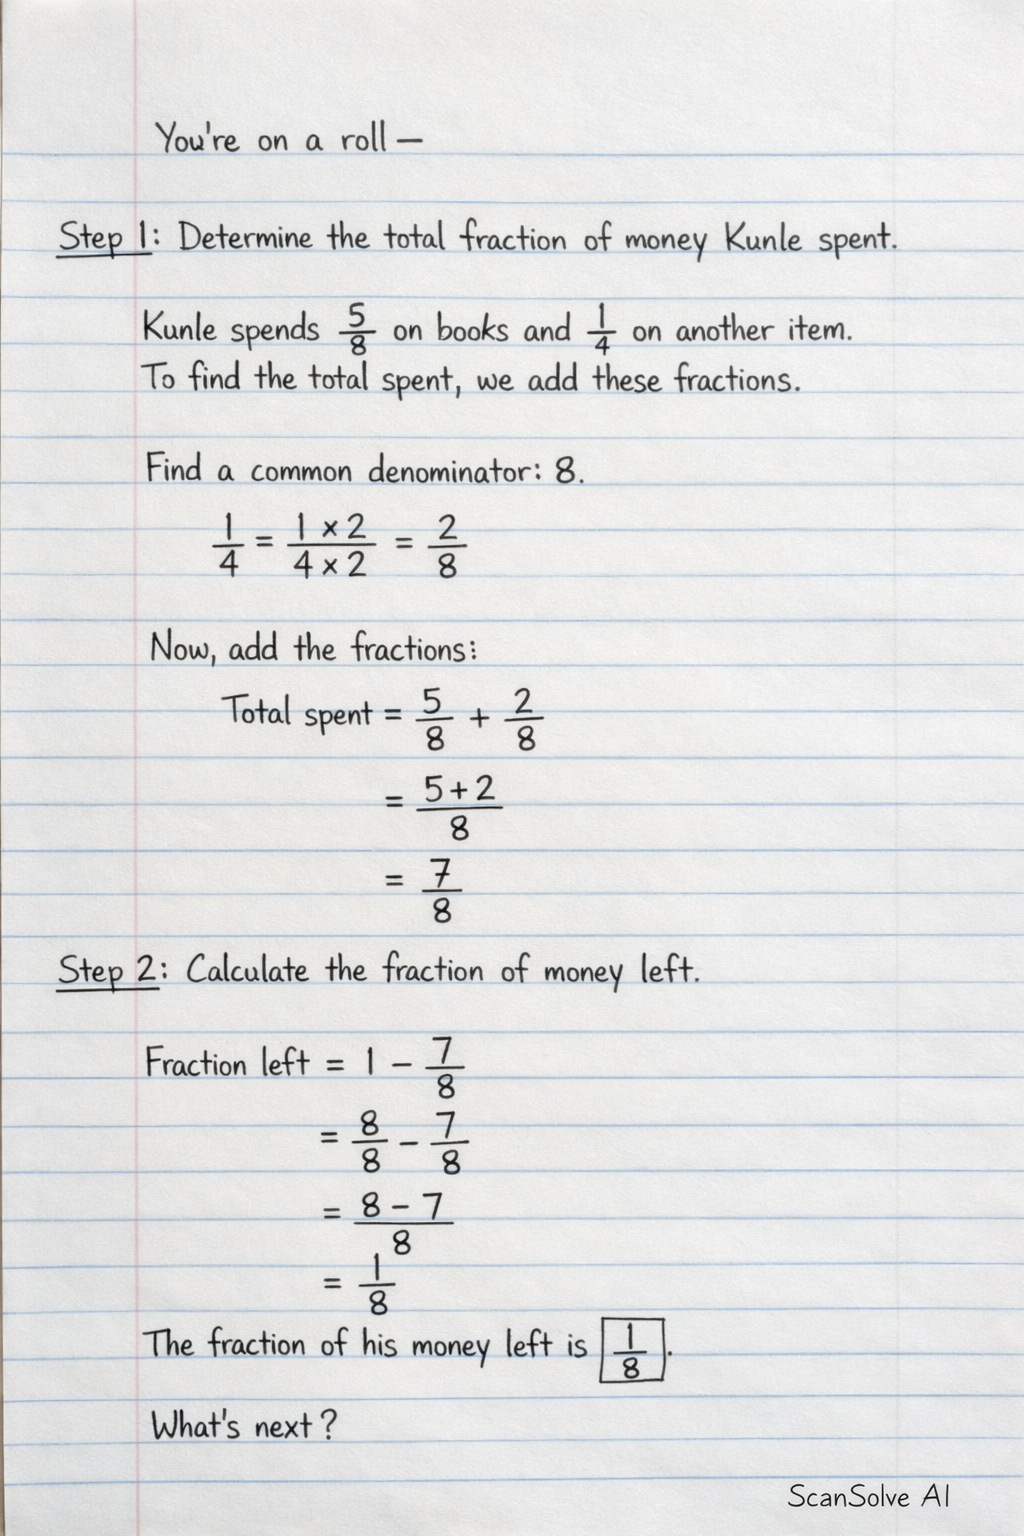 You're on a roll —
Step 1: Determine the total fraction of money Kunle spent.
Kunle spends 5/8 on books and 1/4 on another item.
To find the total spent, we add these fractions.
Find a common denominator: 8.
1/4 = (1 × 2)/(4 × 2) = 2/8
Now, add the fractions:
Total spent = 5/8 + 2/8
= (5+2)/8
= 7/8
Step 2: Calculate the fraction of money left.
Fraction left = 1 − 7/8
= 8/8 − 7/8
= (8 − 7)/8
= 1/8
The fraction of his money left is 1/8.
What's next?
ScanSolve AI